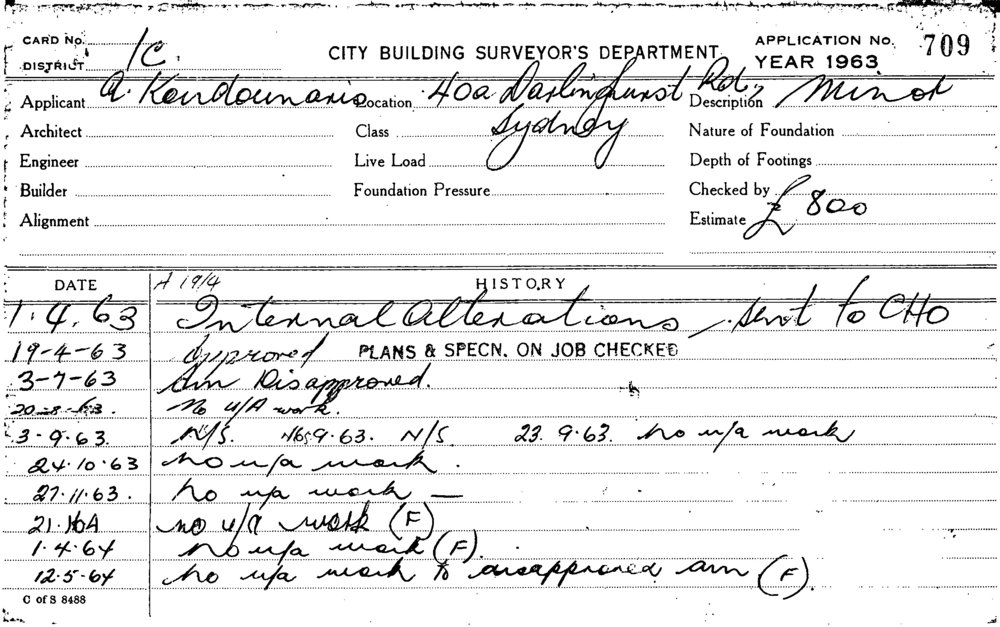 CARD No.
DISTRICT 1C
CITY BUILDING SURVEYOR'S DEPARTMENT
APPLICATION No. 709
YEAR 1963
Applicant A. Koudounaris Location 40a Darlinghurst Rd, Description Minor
Sydney
Architect Class Nature of Foundation
Engineer Live Load Depth of Footings
Builder Foundation Pressure Checked by
Alignment Estimate £ 800
DATE A 19/4 HISTORY
1.4.63 Internal Alterations, sent to CHO
19-4-63 Approved PLANS & SPECN. ON JOB CHECKED
3-7-63 Am Disapproved.
20-8-63. No U/A work.
3.9.63. N/S. 9.63. N/S. 23.9.63. No u/a work
24.10.63 No u/a work.
27.11.63. No u/a work —
no u/a work (F)
1.4.64 No u/a work (F).
12.5.64 No u/a work to disapproved am (F).
C of S 8488